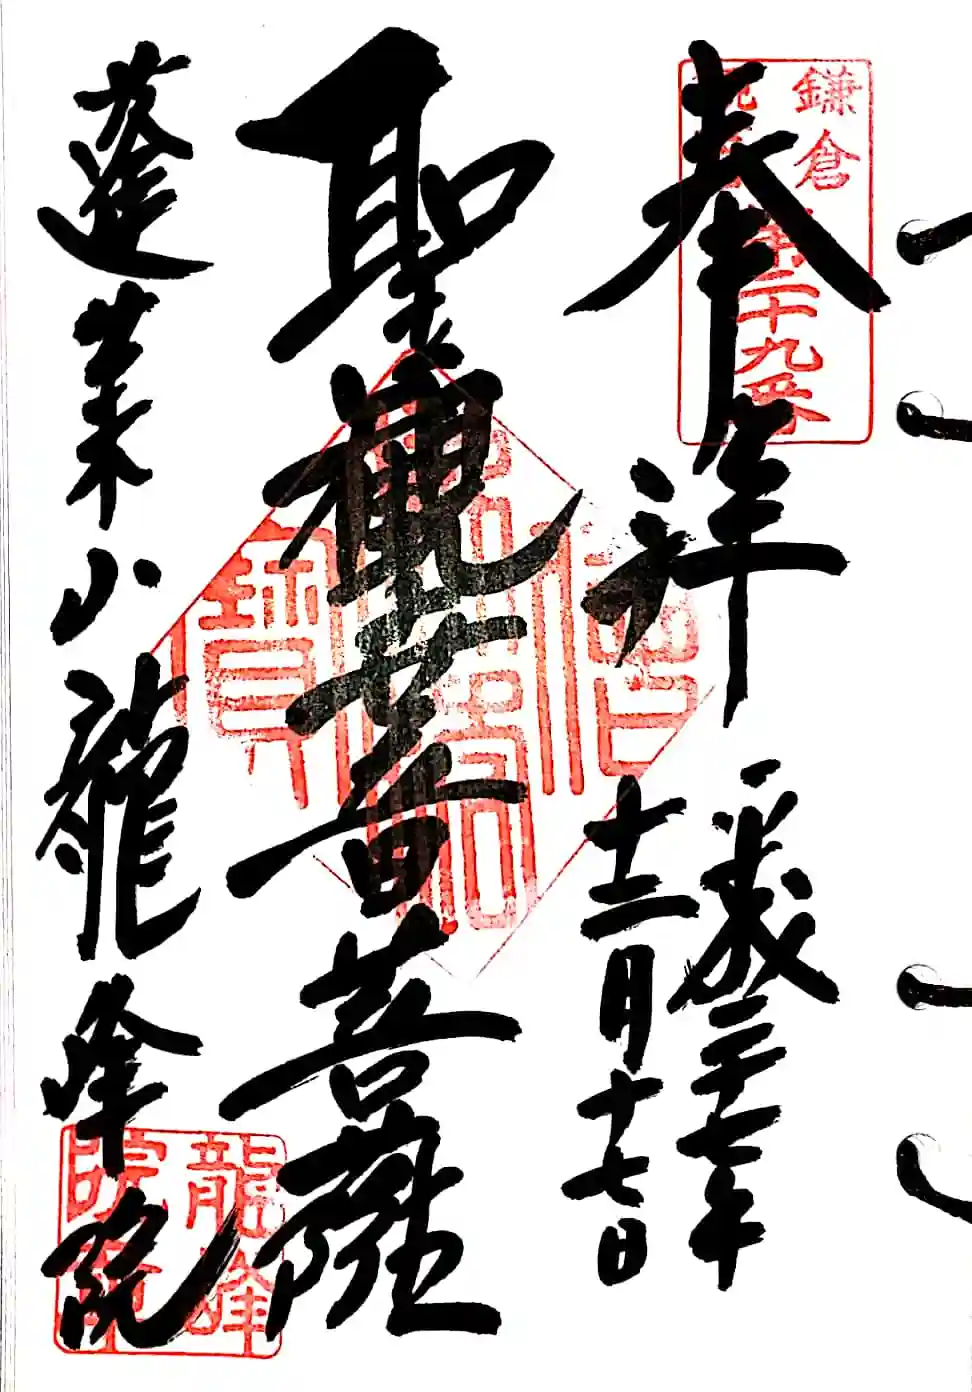 鎌倉
第二十九番
奉拝
平成二十七年
十二月十七日
聖観世音菩薩
蓬莱山龍峰院
龍峰
院